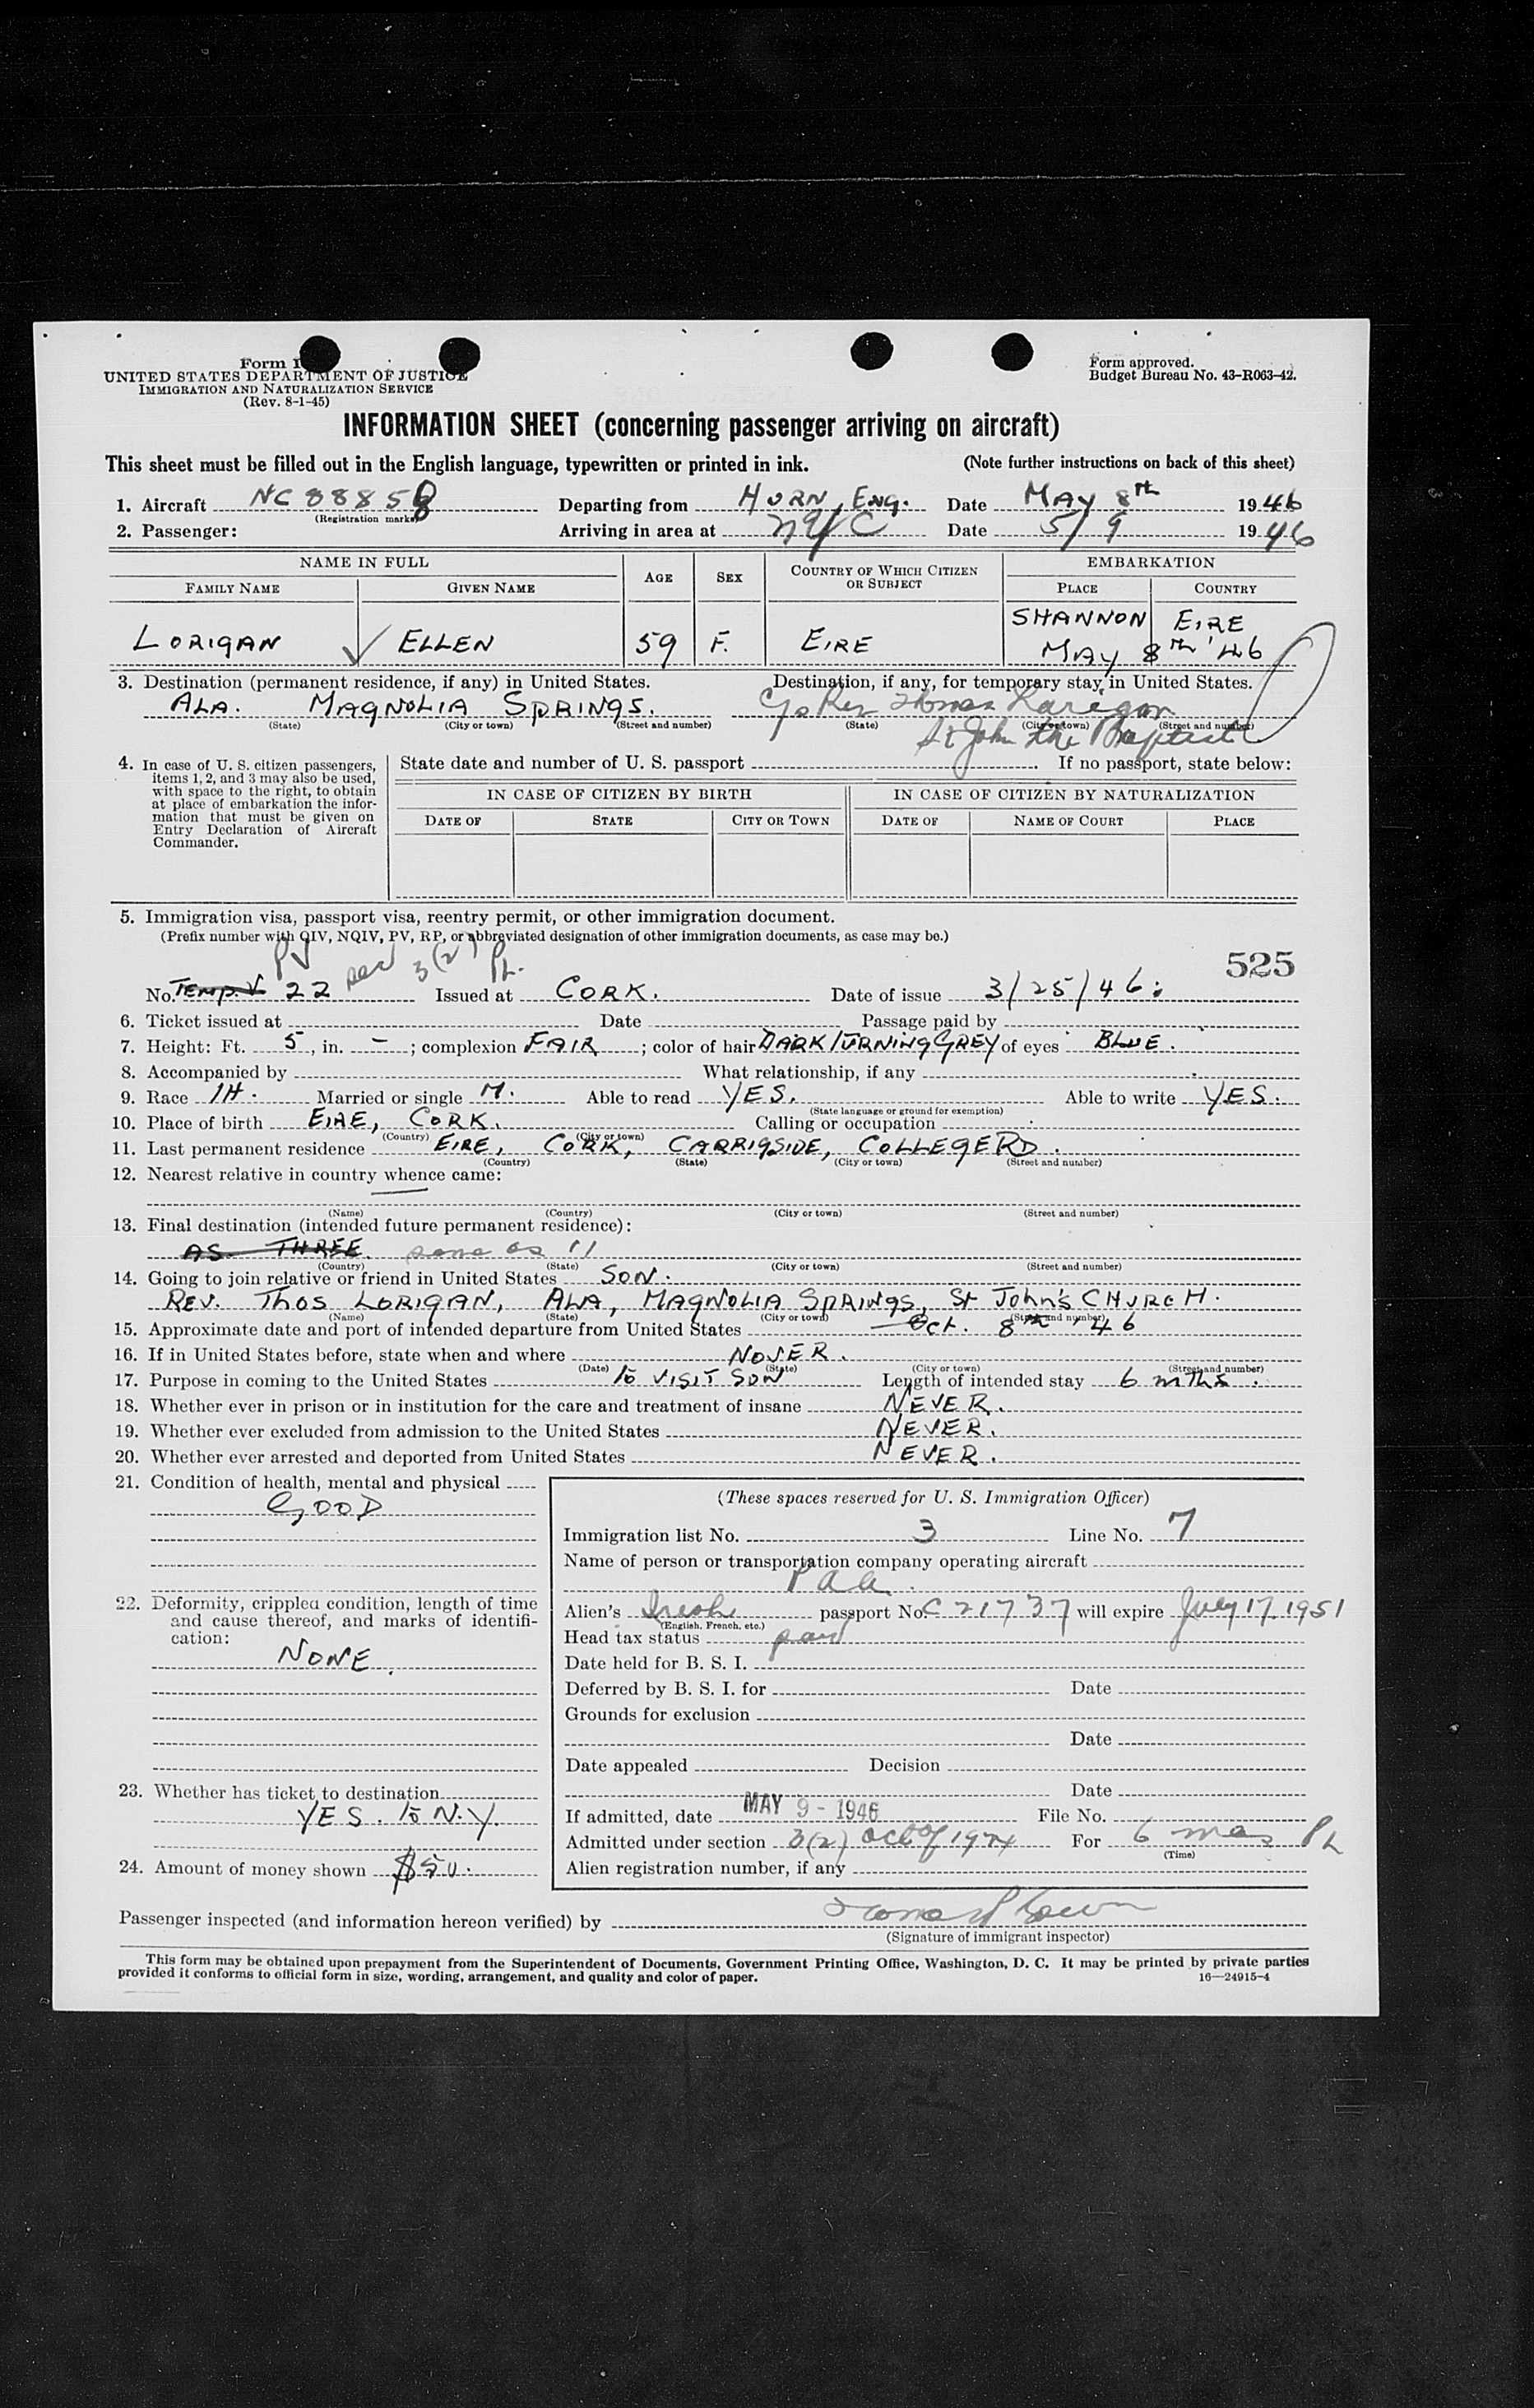 Form I
UNITED STATES DEPARTMENT OF JUSTICE
IMMIGRATION AND NATURALIZATION SERVICE
(Rev. 8-1-45)
Form approved.
Budget Bureau No. 43-R063-42.
INFORMATION SHEET (concerning passenger arriving on aircraft)
This sheet must be filled out in the English language, typewritten or printed in ink. (Note further instructions on back of this sheet)
1. Aircraft NC 88858 Departing from HURN, ENG. Date MAY 8th 1946
(Registration marks)
2. Passenger: Arriving in area at NYC Date 5/9 1946
NAME IN FULL AGE SEX COUNTRY OF WHICH CITIZEN OR SUBJECT EMBARKATION
FAMILY NAME GIVEN NAME PLACE COUNTRY
SHANNON EIRE
LORIGAN ELLEN 59 F. EIRE MAY 8th '46
3. Destination (permanent residence, if any) in United States. Destination, if any, for temporary stay in United States.
ALA. MAGNOLIA SPRINGS. c/o Rev Thomas Lorigan
(State) (City or town) (Street and number) (State) (City or town) (Street and number)
St John the Baptist
4. In case of U. S. citizen passengers, items 1, 2, and 3 may also be used, with space to the right, to obtain at place of embarkation the information that must be given on Entry Declaration of Aircraft Commander.
State date and number of U. S. passport If no passport, state below:
IN CASE OF CITIZEN BY BIRTH IN CASE OF CITIZEN BY NATURALIZATION
DATE OF STATE CITY OR TOWN DATE OF NAME OF COURT PLACE
5. Immigration visa, passport visa, reentry permit, or other immigration document.
(Prefix number with QIV, NQIV, PV, RP, or abbreviated designation of other immigration documents, as case may be.)
PV sec 3(2) 525
No. TEMP. V 22 Issued at CORK. Date of issue 3/25/46.
6. Ticket issued at Date Passage paid by
7. Height: Ft. 5, in. - ; complexion FAIR ; color of hair DARK TURNING GREY of eyes BLUE.
8. Accompanied by What relationship, if any
9. Race IH. Married or single M. Able to read YES. Able to write YES.
(State language or ground for exemption)
10. Place of birth EIRE, CORK. Calling or occupation
(Country) (City or town)
11. Last permanent residence EIRE, CORK, CARRIGSIDE, COLLEGE RD.
(Country) (State) (City or town) (Street and number)
12. Nearest relative in country whence came:
(Name) (Country) (City or town) (Street and number)
13. Final destination (intended future permanent residence):
AS THREE. same as 11
(Country) (State) (City or town) (Street and number)
14. Going to join relative or friend in United States SON.
REV. THOS LORIGAN, ALA, MAGNOLIA SPRINGS, St JOHN'S CHURCH.
(Name) (State) (City or town) (Street and number)
15. Approximate date and port of intended departure from United States Oct. 8th '46
16. If in United States before, state when and where NEVER.
(Date) (State) (City or town) (Street and number)
17. Purpose in coming to the United States To VISIT SON Length of intended stay 6 mths.
18. Whether ever in prison or in institution for the care and treatment of insane NEVER.
19. Whether ever excluded from admission to the United States NEVER.
20. Whether ever arrested and deported from United States NEVER.
21. Condition of health, mental and physical
GOOD
22. Deformity, crippled condition, length of time and cause thereof, and marks of identification:
NONE.
23. Whether has ticket to destination
YES. To N.Y.
24. Amount of money shown $50.
(These spaces reserved for U. S. Immigration Officer)
Immigration list No. 3 Line No. 7
Name of person or transportation company operating aircraft
PAA.
Alien's Irish passport No. C 21737 will expire July 17, 1951
(English, French, etc.)
Head tax status paid
Date held for B. S. I.
Deferred by B. S. I. for Date
Grounds for exclusion
Date
Date appealed Decision
Date
If admitted, date MAY 9 - 1946 File No.
Admitted under section 3(2) act of 1924 For 6 mos
(Time)
Alien registration number, if any
Passenger inspected (and information hereon verified) by
(Signature of immigrant inspector)
This form may be obtained upon prepayment from the Superintendent of Documents, Government Printing Office, Washington, D. C. It may be printed by private parties
provided it conforms to official form in size, wording, arrangement, and quality and color of paper. 16—24915-4